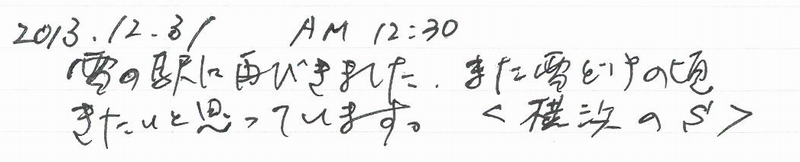 2013.12.31 AM 12:30
雪の駅に再びきました. また雪どけの頃
きたいと思っています。 <横浜のS>